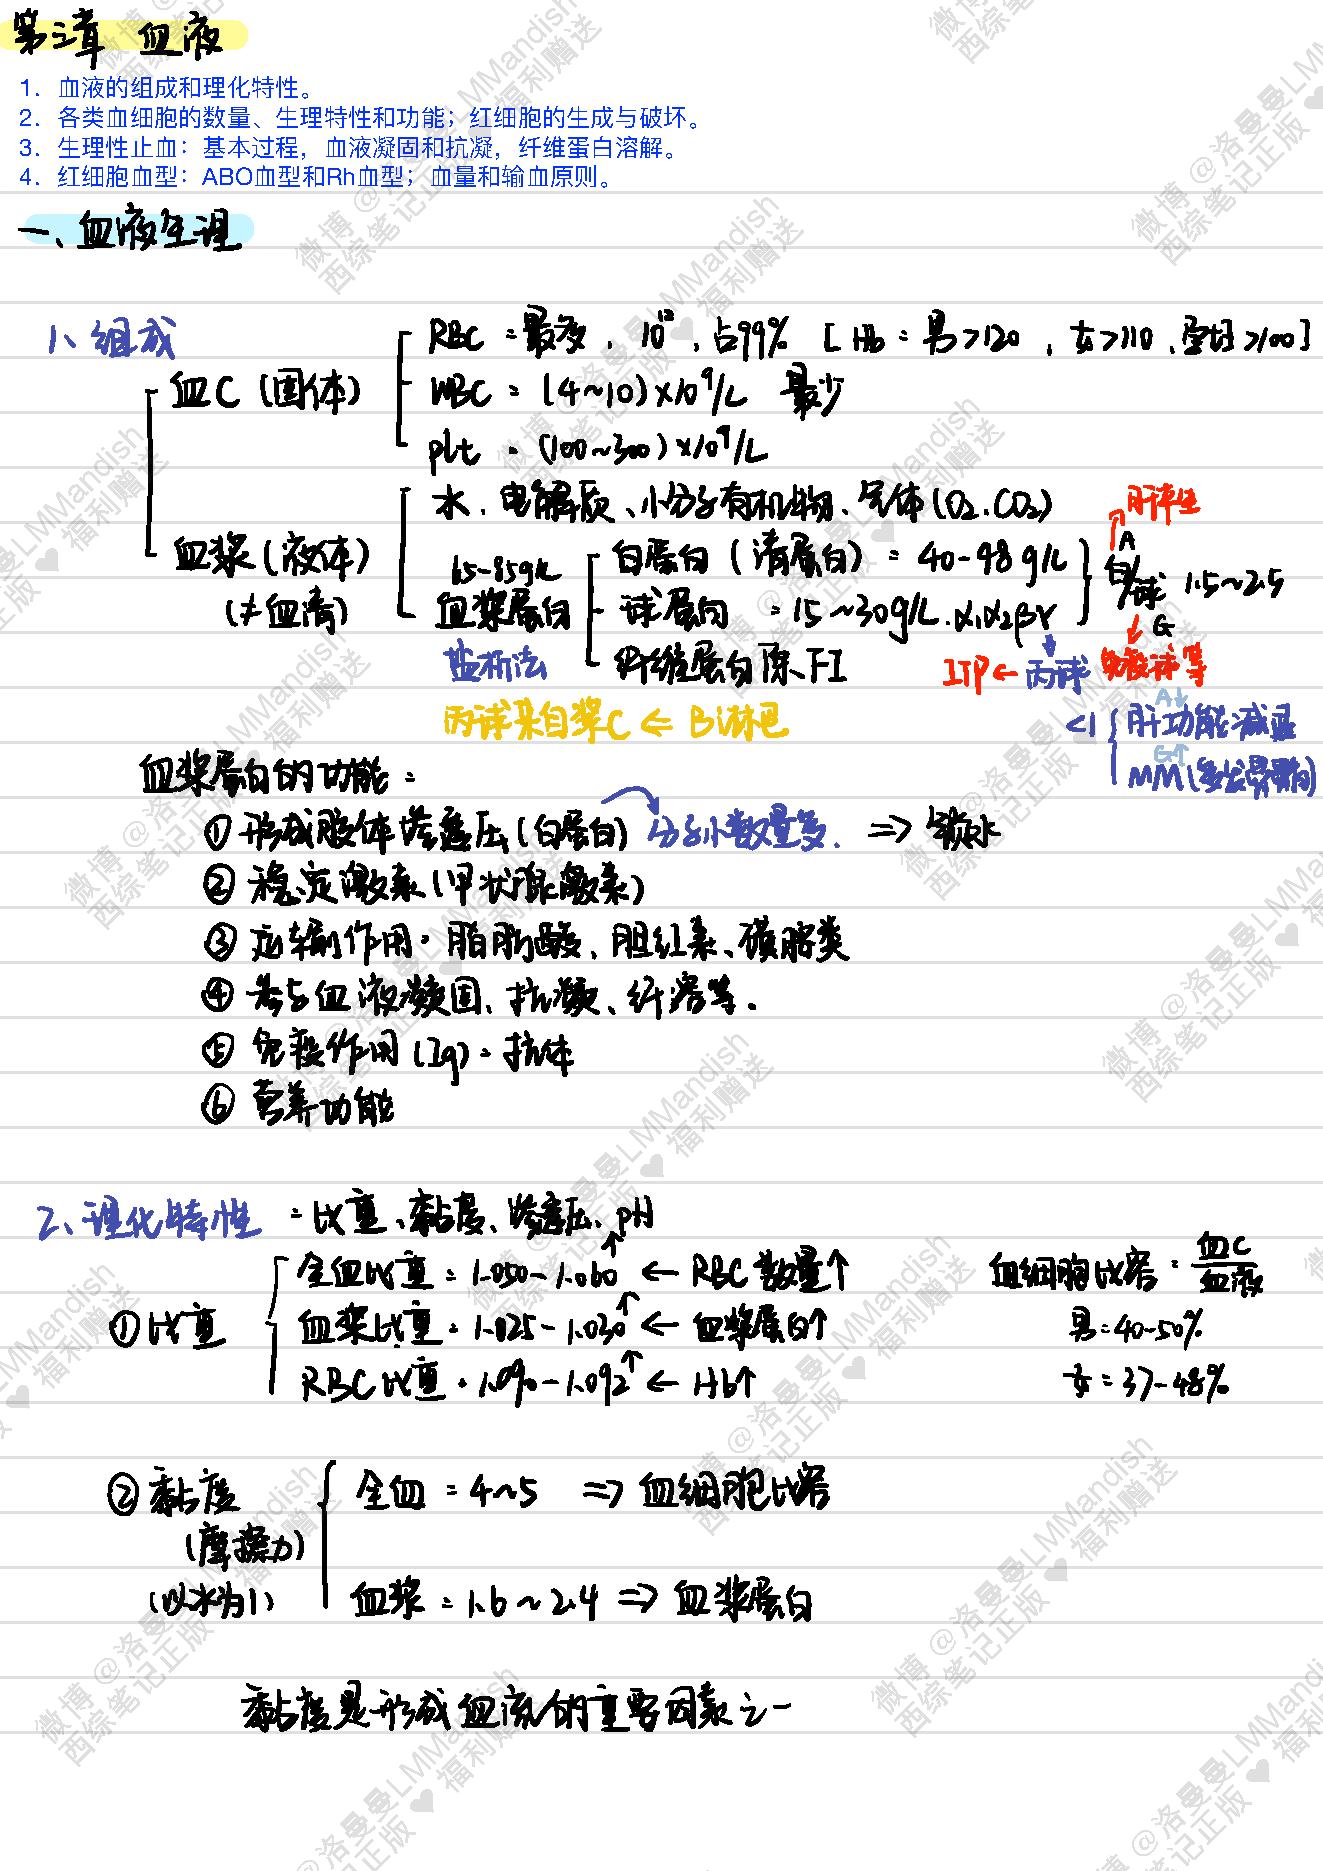 第三章 血液
1. 血液的组成和理化特性。
2. 各类血细胞的数量、生理特性和功能；红细胞的生成与破坏。
3. 生理性止血：基本过程，血液凝固和抗凝，纤维蛋白溶解。
4. 红细胞血型：ABO血型和Rh血型；血量和输血原则。
一、血液生理
1、组成
血C（固体）
RBC = 最多. 10¹², 占99% [Hb = 男>120, 女>110, 孕妇>100]
WBC = (4~10)×10⁹/L 最少
plt = (100~300)×10⁹/L
血浆（液体）
(≠血清)
水、电解质、小分子有机物、气体(O₂.CO₂)
65-85g/L
血浆蛋白
盐析法
白蛋白（清蛋白）= 40-48g/L
球蛋白 = 15~30g/L. α₁α₂βγ
纤维蛋白原FI
肝产生
A
白/球 1.5~2.5
G
免疫球等
ITP ← 丙球
丙球来自浆C ← B淋巴
<1
A↓
肝功能减退
G↑
MM(多发骨髓瘤)
血浆蛋白的功能：
① 形成胶体渗透压(白蛋白) 分子小数量多. ⇒ 锁水
② 稳定激素(甲状腺激素)
③ 运输作用：脂肪酸、胆红素、磺胺类
④ 参与血液凝固、抗凝、纤溶等.
⑤ 免疫作用(Ig)：抗体
⑥ 营养功能
2、理化特性 = 比重、黏度、渗透压、pH
① 比重
全血比重 = 1.050-1.060↑ ← RBC数量↑
血浆比重 = 1.025-1.030↑ ← 血浆蛋白↑
RBC比重 = 1.090-1.092↑ ← Hb↑
血细胞比容 = 血C/血液
男=40-50%
女=37-48%
② 黏度
(摩擦力)
(以水为1)
全血 = 4~5 ⇒ 血细胞比容
血浆 = 1.6~2.4 ⇒ 血浆蛋白
黏度是形成血流的重要因素之一
微博@洛曼曼LMMandish
西综笔记正版♥福利赠送